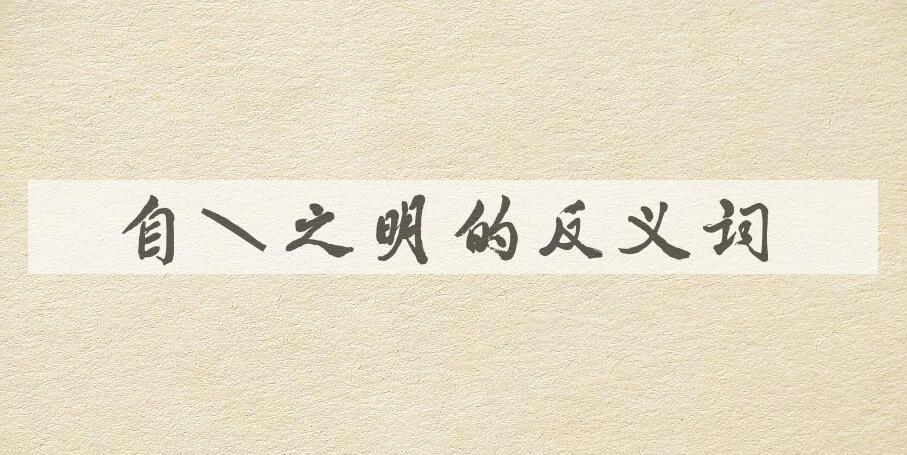 自\之明的反义词